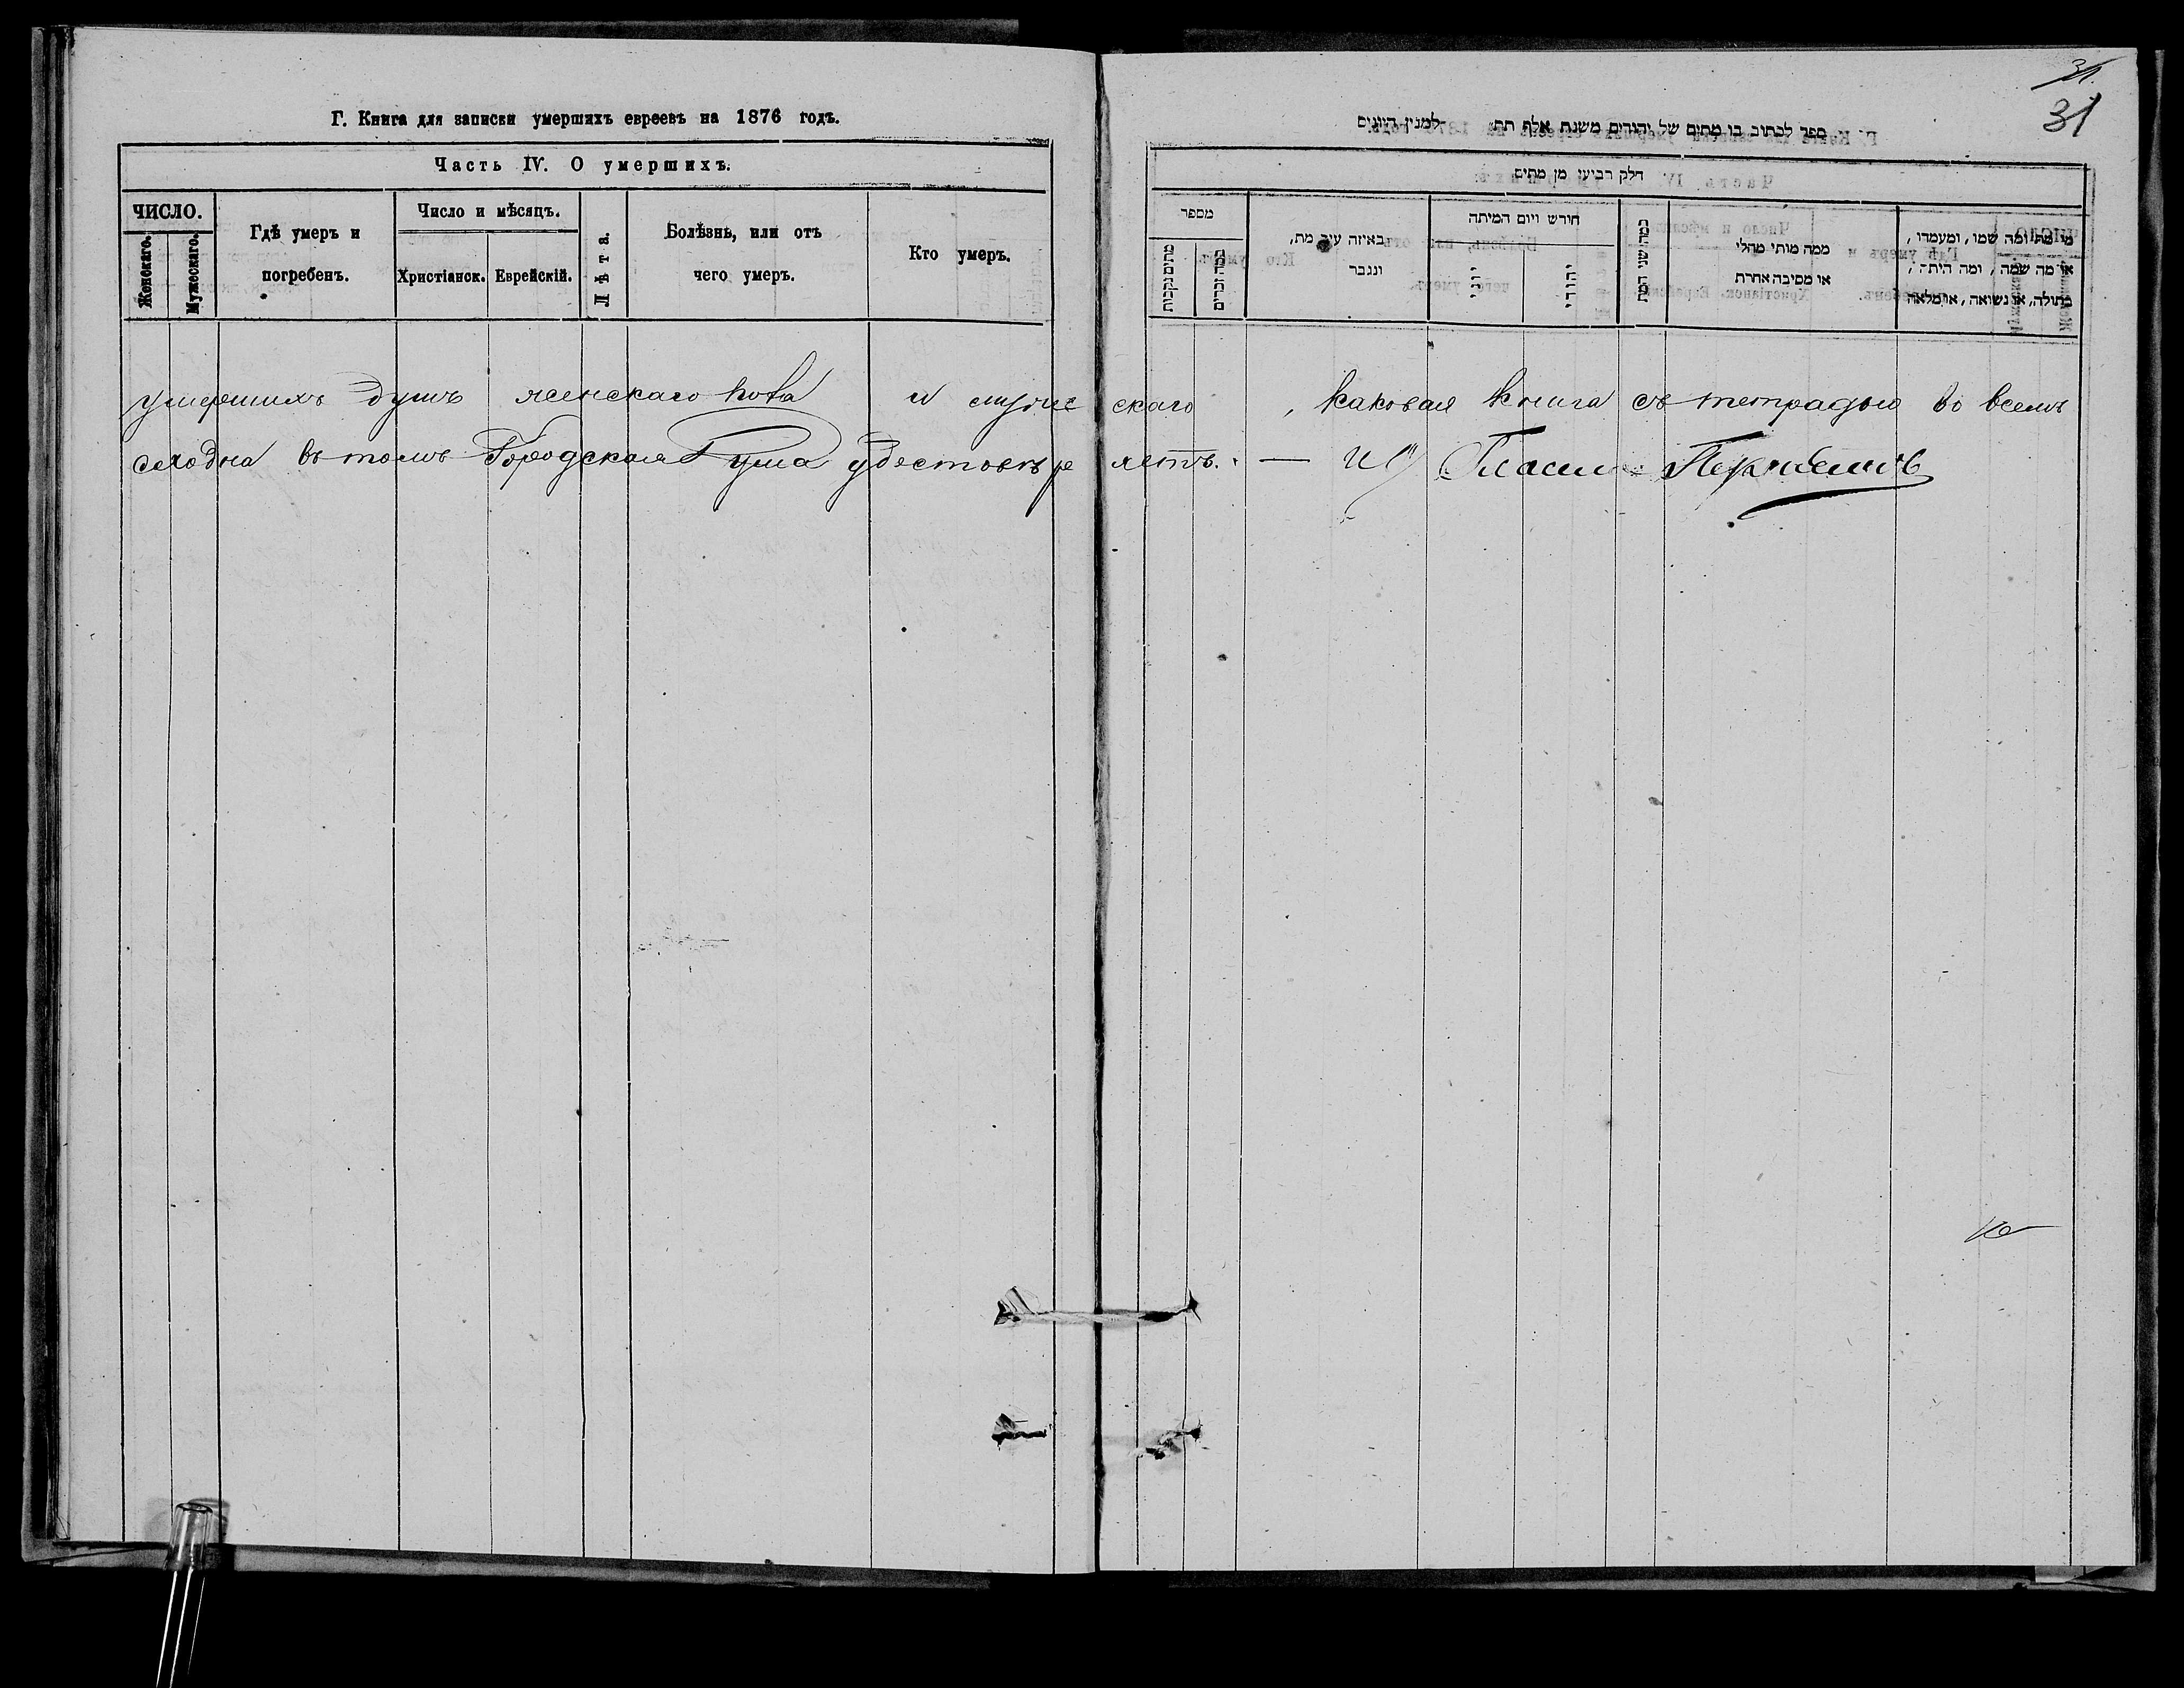 Г. Книга для записки умершихъ евреевъ на 1876 годъ.
Часть IV. О умершихъ.
ЧИСЛО.
Женскаго.
Мужескаго.
Гдѣ умеръ и
погребенъ.
Число и мѣсяцъ.
Христіанск.
Еврейскій.
Лѣта.
Болѣзнь, или отъ
чего умеръ.
Кто умеръ.
31
31
ספר לכתוב בו מתים של יהודים משנת אלף תת למנין היונים
חלק רביעי מן מתים
מספר
באיזה עיר מת,
ונגבר
חודש ויום המיתה
יוני
יהודי
ממה מותי מחלי
או מסיבה אחרת
מי מת ומה שמו, ומעמדו,
או מה שמה, ומה היתה,
בתולה, או נשואה, או מלאה
умершихъ душъ женскаго пола и мужескаго, каковая книга съ тетрадью во всемъ
сходна въ томъ Городская Дума удостовѣряетъ. —